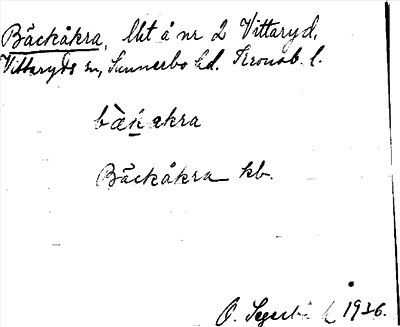 Bäckåkra, lht å nr 2 Vittaryd,
Vittaryds sn, Sunnerbo hd. Kronob. l.
bæ̀kakra
Bäckåkra kb.
O. 1936.